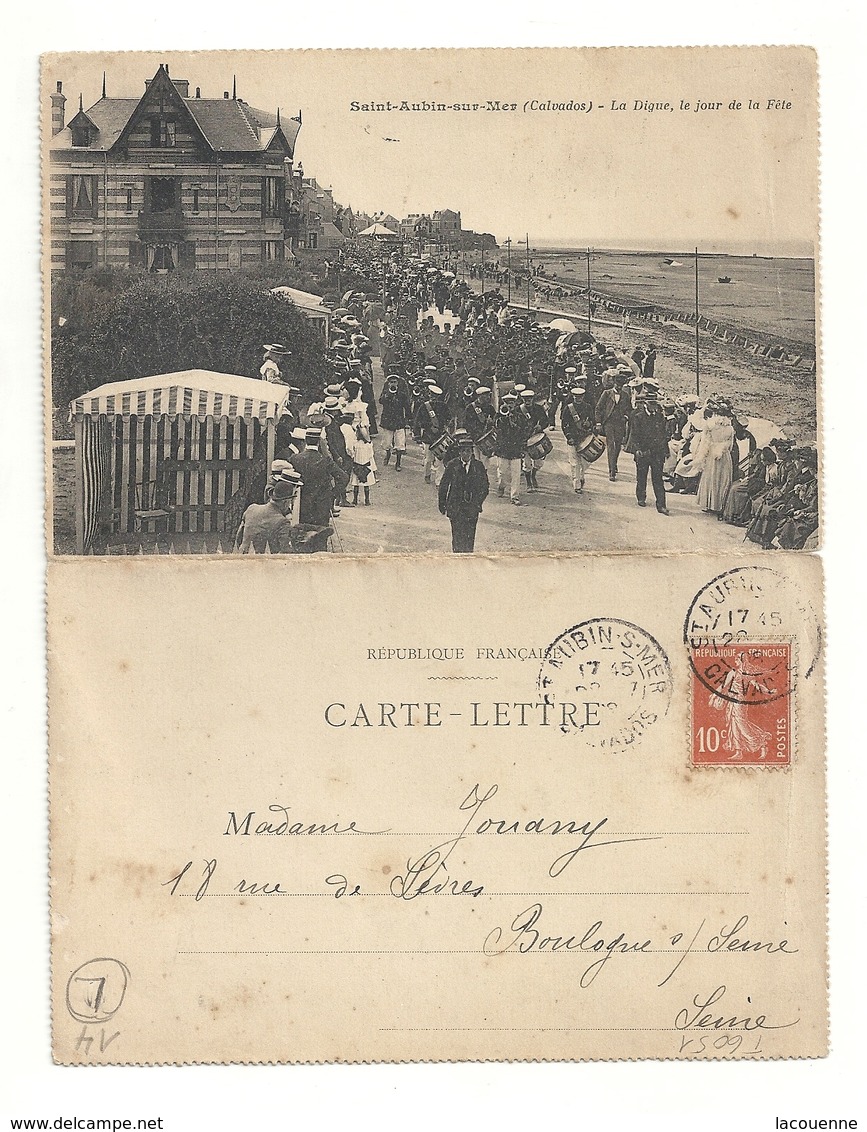 Saint-Aubin-sur-Mer (Calvados) - La Digue, le jour de la Fête
RÉPUBLIQUE FRANÇAISE
CARTE-LETTRE
ST AUBIN-S-MER
17 45
CALVADOS
ST AUBIN
17 45
CALVADOS
RÉPUBLIQUE FRANÇAISE
10c
POSTES
Madame Jouany
18 rue de Sèvres
Boulogne s/ Seine
Seine
7
14
I 6051
Delcampe.net
lacouenne